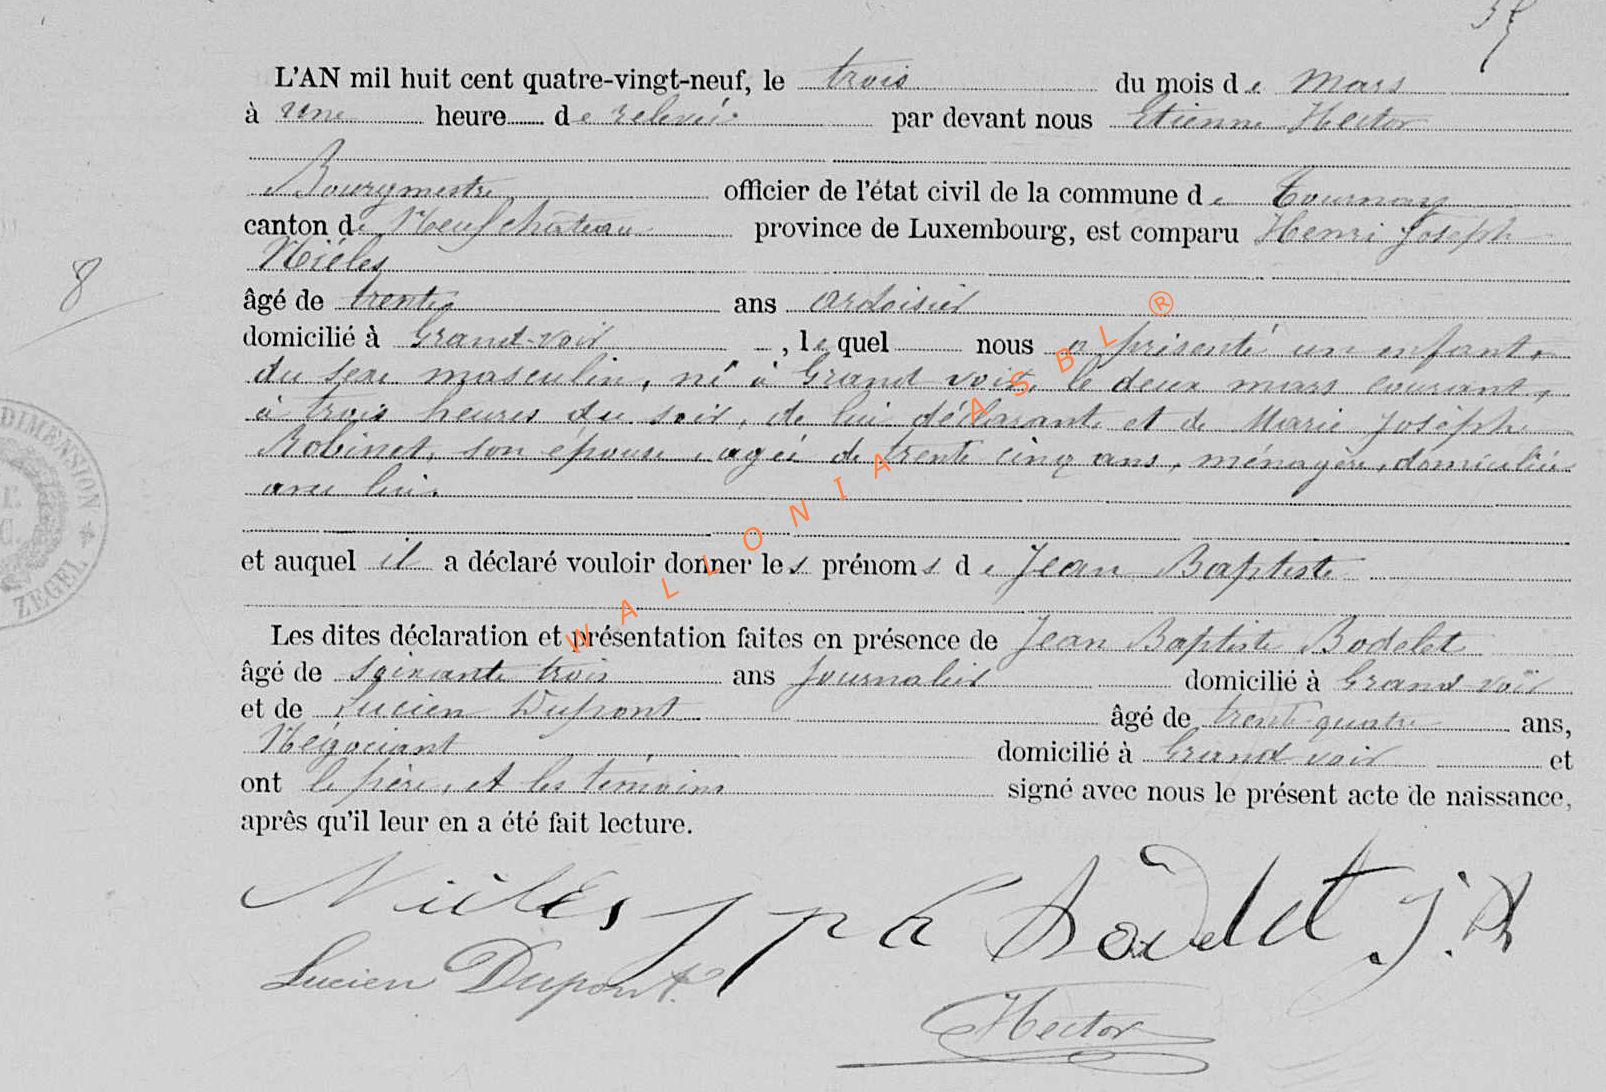 35
L'AN mil huit cent quatre-vingt-neuf, le trois du mois de Mars
à une heure de relevée par devant nous Etienne Hector
Bourgmestre officier de l'état civil de la commune de Tournay
canton de Neufchâteau province de Luxembourg, est comparu Henri Joseph
Nièles
8
âgé de trente ans ardoisier
domicilié à Grand-voir, lequel nous a présenté un enfant
du sexe masculin, né à Grand voir, le deux mars courant,
à trois heures du soir, de lui déclarant et de Marie Joséphe
Robinet, son épouse, agée de trente cinq ans, ménagère, domiciliée
avec lui.
et auquel il a déclaré vouloir donner les prénoms de Jean Baptiste
Les dites déclaration et présentation faites en présence de Jean Baptiste Bodelet
âgé de soixante trois ans Journalier domicilié à Grand voir
et de Lucien Dupont âgé de trente-quatre ans,
Négociant domicilié à Grand voir et
ont le père, et les témoins signé avec nous le présent acte de naissance,
après qu'il leur en a été fait lecture.
Nièles
Lucien Dupont
Hector
DIMENSION
ZEGEL
WALLONIA ASBL ®